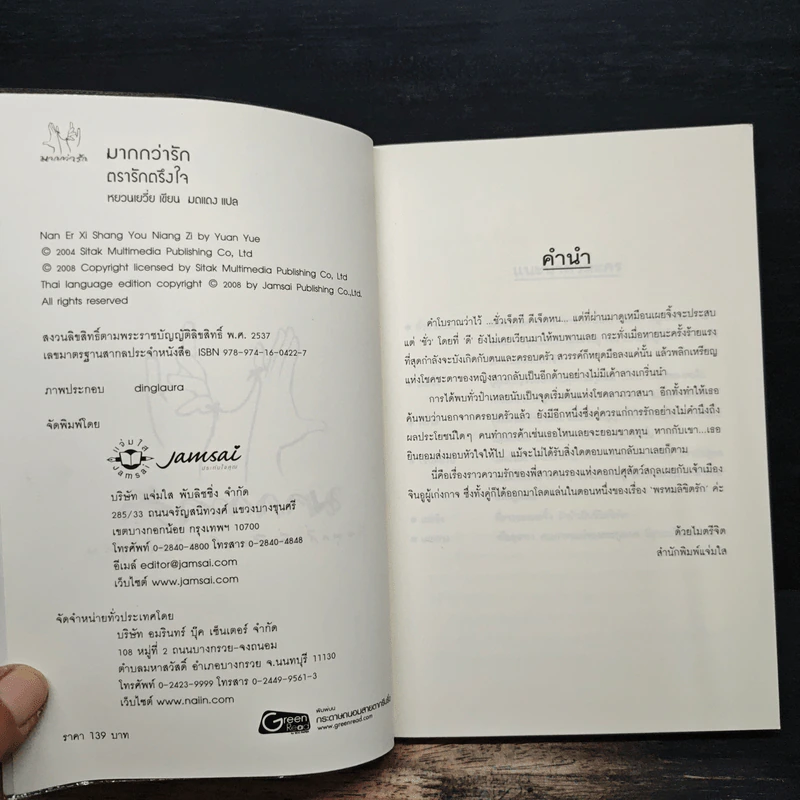 มากกว่ารัก
มากกว่ารัก
ตรารักตรึงใจ
หยวนเยวี่ย เขียน มดแดง แปล
Nan Er Xi Shang You Niang Zi by Yuan Yue
© 2004 Sitak Multimedia Publishing Co, Ltd
© 2008 Copyright licensed by Sitak Multimedia Publishing Co, Ltd
Thai language edition copyright © 2008 by Jamsai Publishing Co.,Ltd.
All rights reserved
สงวนลิขสิทธิ์ตามพระราชบัญญัติลิขสิทธิ์ พ.ศ. 2537
เลขมาตรฐานสากลประจำหนังสือ ISBN 978-974-16-0422-7
ภาพประกอบ dinglaura
จัดพิมพ์โดย
แจ่มใส
Jamsai
Jamsai
บริษัท แจ่มใส พับลิชชิ่ง จำกัด
285/33 ถนนจรัญสนิทวงศ์ แขวงบางขุนศรี
เขตบางกอกน้อย กรุงเทพฯ 10700
โทรศัพท์ 0-2840-4800 โทรสาร 0-2840-4848
อีเมล์ editor@jamsai.com
เว็บไซต์ www.jamsai.com
จัดจำหน่ายทั่วประเทศโดย
บริษัท อมรินทร์ บุ๊ค เซ็นเตอร์ จำกัด
108 หมู่ที่ 2 ถนนบางกรวย-จงถนอม
ตำบลมหาสวัสดิ์ อำเภอบางกรวย จ.นนทบุรี 11130
โทรศัพท์ 0-2423-9999 โทรสาร 0-2449-9561-3
เว็บไซต์ www.naiin.com
Green Read
พิมพ์บน
กระดาษถนอมสายตากรีนรี้ด
www.greenread.com
ราคา 139 บาท
คำนำ
คำโบราณว่าไว้ ...ชั่วเจ็ดที ดีเจ็ดหน... แต่ที่ผ่านมาดูเหมือนเผยจิ้งจะประสบ
แต่ ‘ชั่ว’ โดยที่ ‘ดี’ ยังไม่เคยเวียนมาให้พบพานเลย กระทั่งเมื่อหายนะครั้งร้ายแรง
ที่สุดกำลังจะบังเกิดกับตนและครอบครัว สวรรค์ก็หยุดมือลงแค่นั้น แล้วพลิกเหรียญ
แห่งโชคชะตาของหญิงสาวกลับเป็นอีกด้านอย่างไม่มีเค้าลางเกริ่นนำ
การได้พบทั่วป๋าเหลยนับเป็นจุดเริ่มต้นแห่งโชคลาภวาสนา อีกทั้งทำให้เธอ
ค้นพบว่านอกจากครอบครัวแล้ว ยังมีอีกหนึ่งซึ่งคู่ควรแก่การรักอย่างไม่คำนึงถึง
ผลประโยชน์ใดๆ คนทำการค้าเช่นเธอไหนเลยจะยอมขาดทุน หากกับเขา...เธอ
ยินยอมส่งมอบหัวใจให้ไป แม้จะไม่ได้รับสิ่งใดตอบแทนกลับมาเลยก็ตาม
นี่คือเรื่องราวความรักของพี่สาวคนรองแห่งคอกปศุสัตว์สกุลเผยกับเจ้าเมือง
จินอูผู้เก่งกาจ ซึ่งทั้งคู่ก็ได้ออกมาโลดแล่นในตอนหนึ่งของเรื่อง ‘พรหมลิขิตรัก’ ค่ะ
ด้วยไมตรีจิต
สำนักพิมพ์แจ่มใส